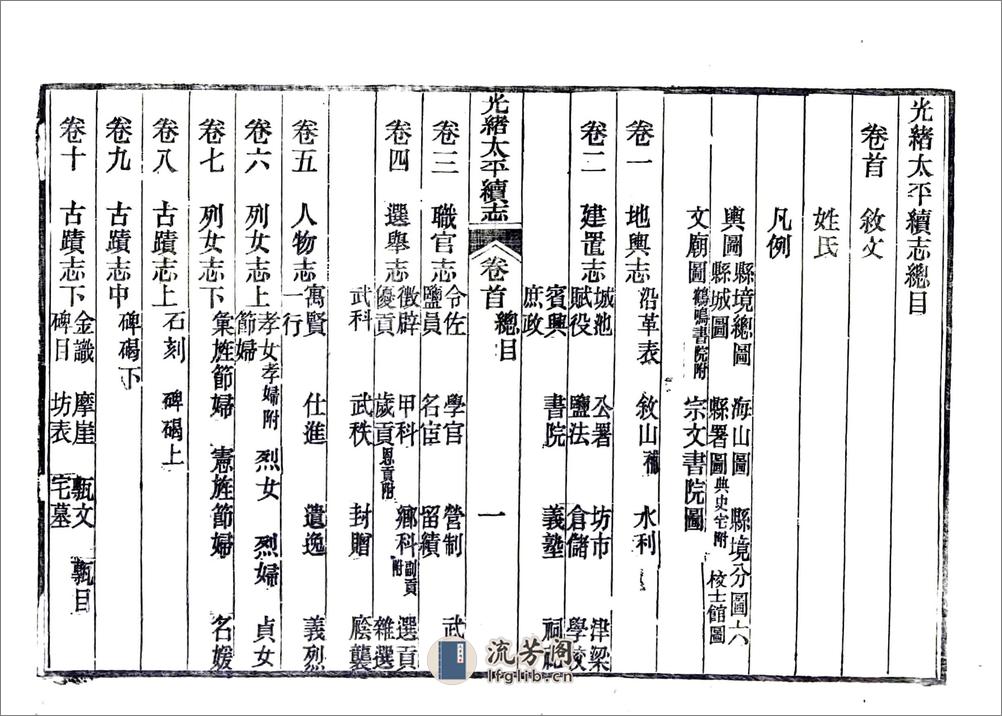 光緒太平續志總目
卷首 敘文
姓氏
凡例
輿圖 縣境總圖 海山圖 縣境分圖十六
縣城圖 縣署圖 典史宅附 校士館圖
文廟圖 鶴鳴書院附 宗文書院圖
卷一 地輿志 沿革表 敘山 補 水利
卷二 建置志 城池 公署 坊市 津梁
賦役 鹽法 倉儲 學校
賓興 書院 義塾
庶政
光緒太平續志 卷首 總目 一
卷三 職官志 令佐 學官 營制
鹽員 名宦 留績
卷四 選舉志 徵辟 甲科 鄉科 副貢附 選貢
優貢 歲貢 恩貢附 雜選
武科 武秩 封贈 廕襲
卷五 人物志 寓賢 仕進 遺逸 義烈
一行
卷六 列女志上 孝女 孝婦附 烈女 烈婦 貞女
節婦
卷七 列女志下 彙旌節婦 憲旌節婦 名媛
卷八 古蹟志上 石刻 碑碣上
卷九 古蹟志中 碑碣下
卷十 古蹟志下 金識 摩崖 甎文 甎目
碑目 坊表 宅墓
流芳阁
lfglib.cn